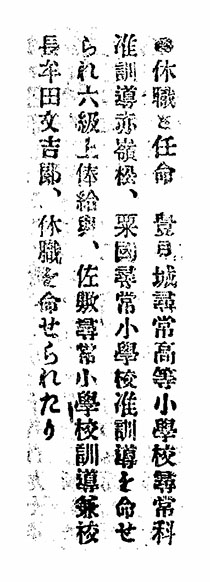 ◉休職と任命　豊見城尋常高等小學校尋常科
准訓導亦嶺、粟國尋常小學校准訓導を命せ
られ六級上俸給與、佐敷尋常小學校訓導兼校
長牟田文吉郎、休職を命せられたり